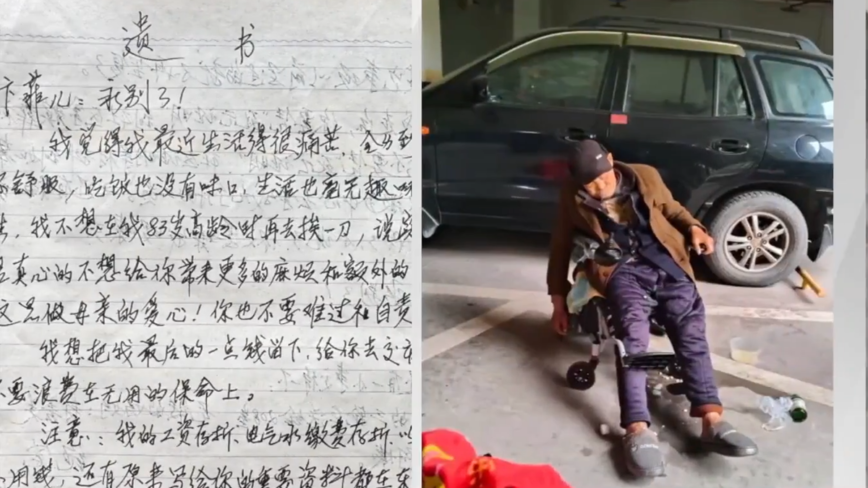 遗书
卞菲儿:永别了!
我觉得我最近生活得很痛苦,全身到
不舒服,吃饭也没有味口,生活也毫无趣味
,我不想在我83岁高龄时再去挨一刀,说
是真心的不想给你带来更多的麻烦和额外的
这是做母亲的爱心!你也不要难过和自责
我想把我最后的一点钱留下,给你去交
不要浪费在无用的保命上。
注意:我的工资存折、电气水缴费存折
用钱,还有原来写给你的重要资料都在